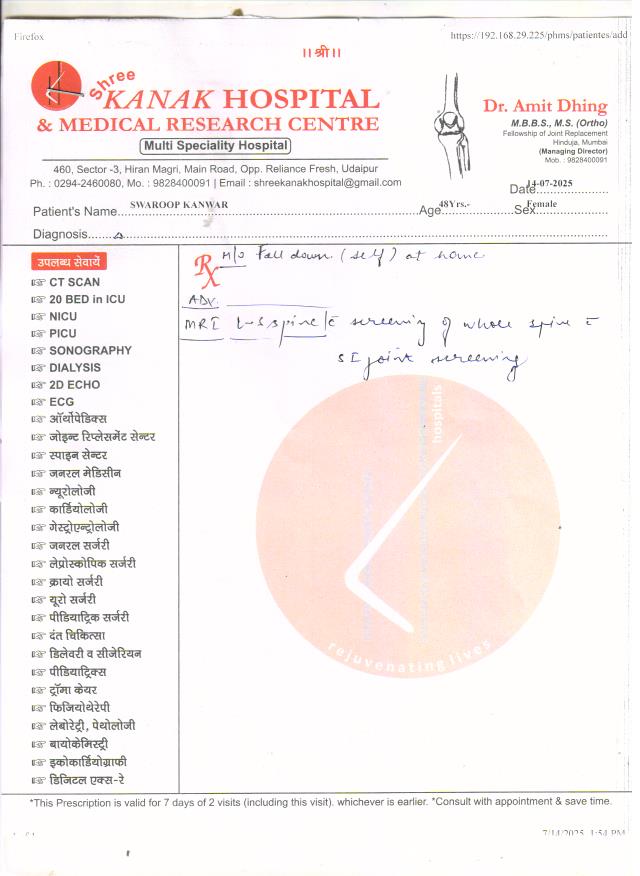 Firefox
https://192.168.29.225/phms/patientes/add
।। श्री ।।
Shree
KANAK HOSPITAL
& MEDICAL RESEARCH CENTRE
Multi Speciality Hospital
460, Sector -3, Hiran Magri, Main Road, Opp. Reliance Fresh, Udaipur
Ph. : 0294-2460080, Mo. : 9828400091 | Email : shreekanakhospital@gmail.com
Dr. Amit Dhing
M.B.B.S., M.S. (Ortho)
Fellowship of Joint Replacement
Hinduja, Mumbai
(Managing Director)
Mob. : 9828400091
Date 14-07-2025
Patient's Name SWAROOP KANWAR Age 48Yrs.- Sex Female
Diagnosis
Rx
H/o Fall down (self) at home
ADV.
MRI L-S spine c̄ screening of whole spine c̄
SI joint screening
उपलब्ध सेवायें
☞ CT SCAN
☞ 20 BED in ICU
☞ NICU
☞ PICU
☞ SONOGRAPHY
☞ DIALYSIS
☞ 2D ECHO
☞ ECG
☞ ऑर्थोपेडिक्स
☞ जोइन्ट रिप्लेसमेंट सेन्टर
☞ स्पाइन सेन्टर
☞ जनरल मेडिसीन
☞ न्यूरोलोजी
☞ कार्डियोलोजी
☞ गेस्ट्रोएन्ट्रोलोजी
☞ जनरल सर्जरी
☞ लेप्रोस्कोपिक सर्जरी
☞ क्रायो सर्जरी
☞ यूरो सर्जरी
☞ पीडियाट्रिक सर्जरी
☞ दंत चिकित्सा
☞ डिलेवरी व सीजेरियन
☞ पीडियाट्रिक्स
☞ ट्रॉमा केयर
☞ फिजियोथेरेपी
☞ लेबोरेट्री, पेथोलोजी
☞ बायोकेमिस्ट्री
☞ इकोकार्डियोग्राफी
☞ डिजिटल एक्स-रे
hospitals
rejuvenating lives
*This Prescription is valid for 7 days of 2 visits (including this visit). whichever is earlier. *Consult with appointment & save time.
7/14/2025, 1:54 PM